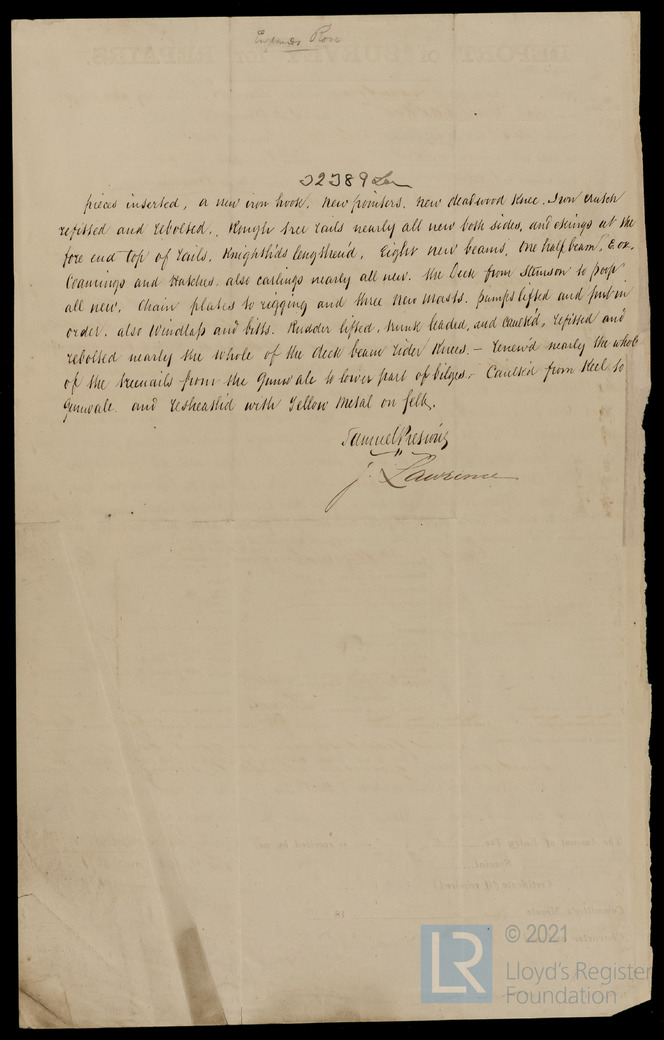 Rose
32389 Lon
pieces inserted, a new iron hook. New pointers. New deadwood Knee. Iron crutch
refitted and rebolted. Rough tree rails nearly all new both sides, and at the
fore end top of rails. Knighth'ds lengthen'd. Eight new beams, One half beam,
Coamings and Hatches. also carlings nearly all new. The Deck from Stemson to poop
all new. Chain plates to rigging and three New Masts. pumps lifted and put in
order. also Windlass and bitts. Rudder lifted, trunk leaded, and Caulk'd, refitted and
rebolted nearly the whole of the deck beam rider Knees. - Renew'd nearly the whole
of the treenails from the Gunwale to lower part of bilges. - Caulk'd from Keel to
Gunwale. and resheath'd with Yellow Metal on felt.
Samuel
J. Lawrence
REPORT of SURVEY for REPAIRS
The Amount of Entry Fee
Special
Certificate (if required)
Committee's Minute
18
Character
LR
© 2021
Lloyd's Register
Foundation